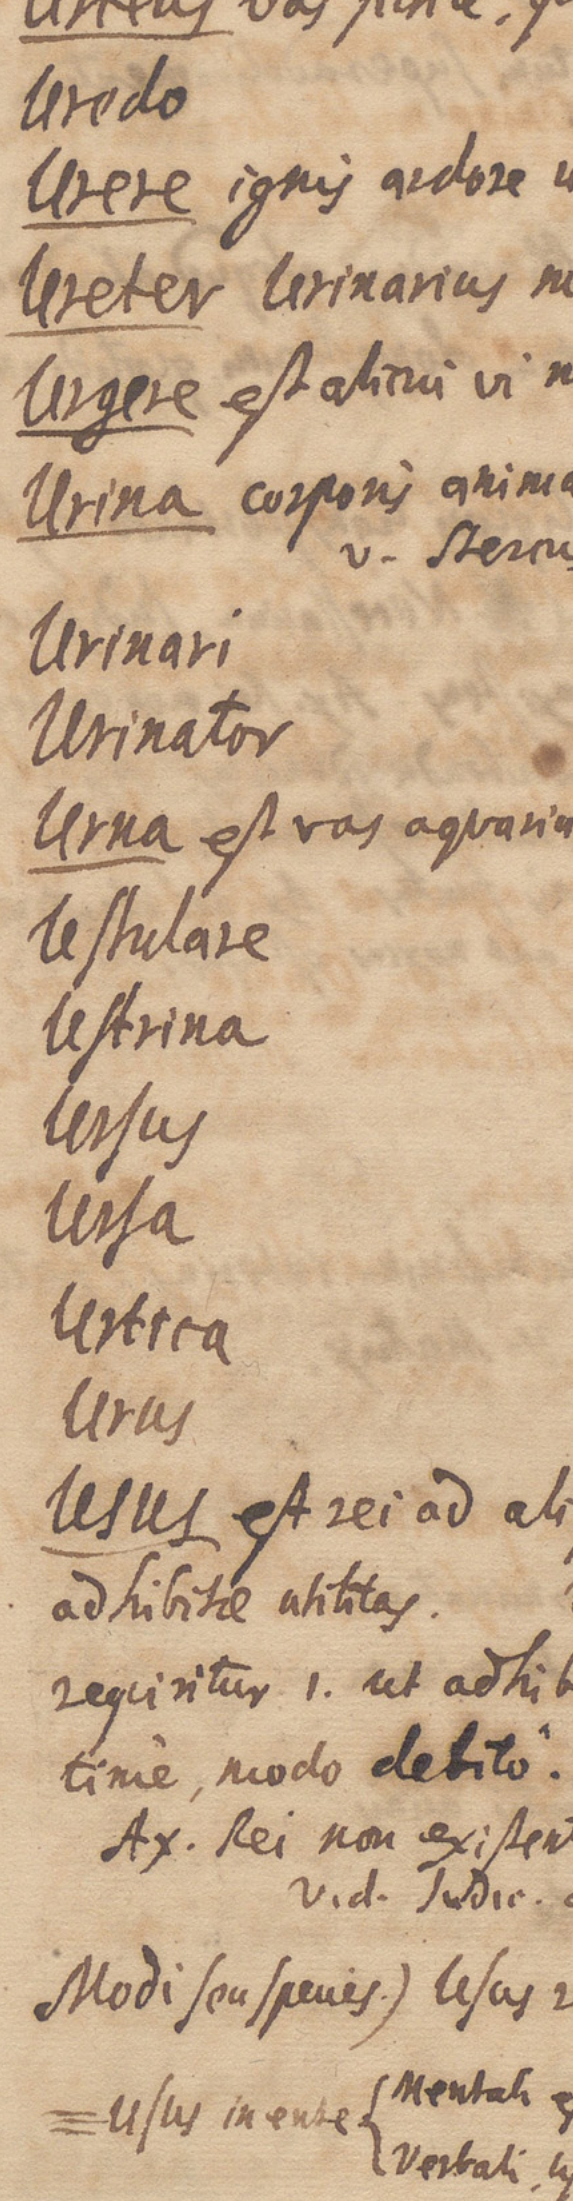 Urceus vas
Uredo
Urere ignis ardore
Ureter Urinarius
Urgere est alicui vi
Urina corporis anima
v. Stercus
Urinari
Urinator
Urna est vas aquariu
Ustulare
Ustrina
Ursus
Ursa
Urtica
Urus
USUS est rei ad ali
adhibitæ utilitas.
requiritur 1. ut adhib
timè, modo debitô.
Ax. Rei non existent
Vid. Judic.
Modi seu species.) Usus
= Usus in ente { Mentali
Verbali,